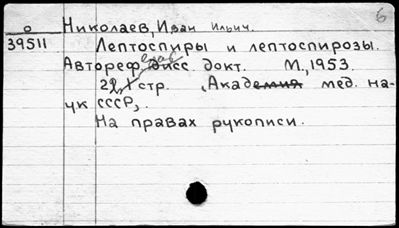 6
о Николаев, Иван Ильич.
39511 Лептоспиры и лептоспирозы.
Автореф дисс докт. М., 1953.
22, 1 стр. , Академия мед. на-
ук СССР,.
На правах рукописи.